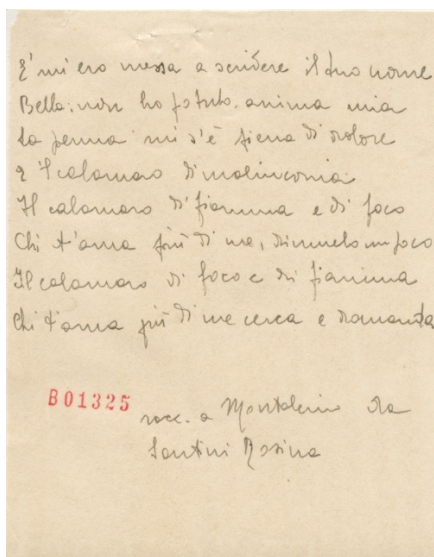 E' mi ero messa a scrivere il tuo nome
Bella: non ho potuto. anima mia
La penna mi s'è piena di dolore
E il calamaro di malinconia
Il calamaro di fiamma e di foco
Chi t'ama più di me, dimmelo un poco
Il calamaro di foco e di fiamma
Chi t'ama più di me cerca e domanda
B01325
racc. a Montalcino da
Santini Rosina